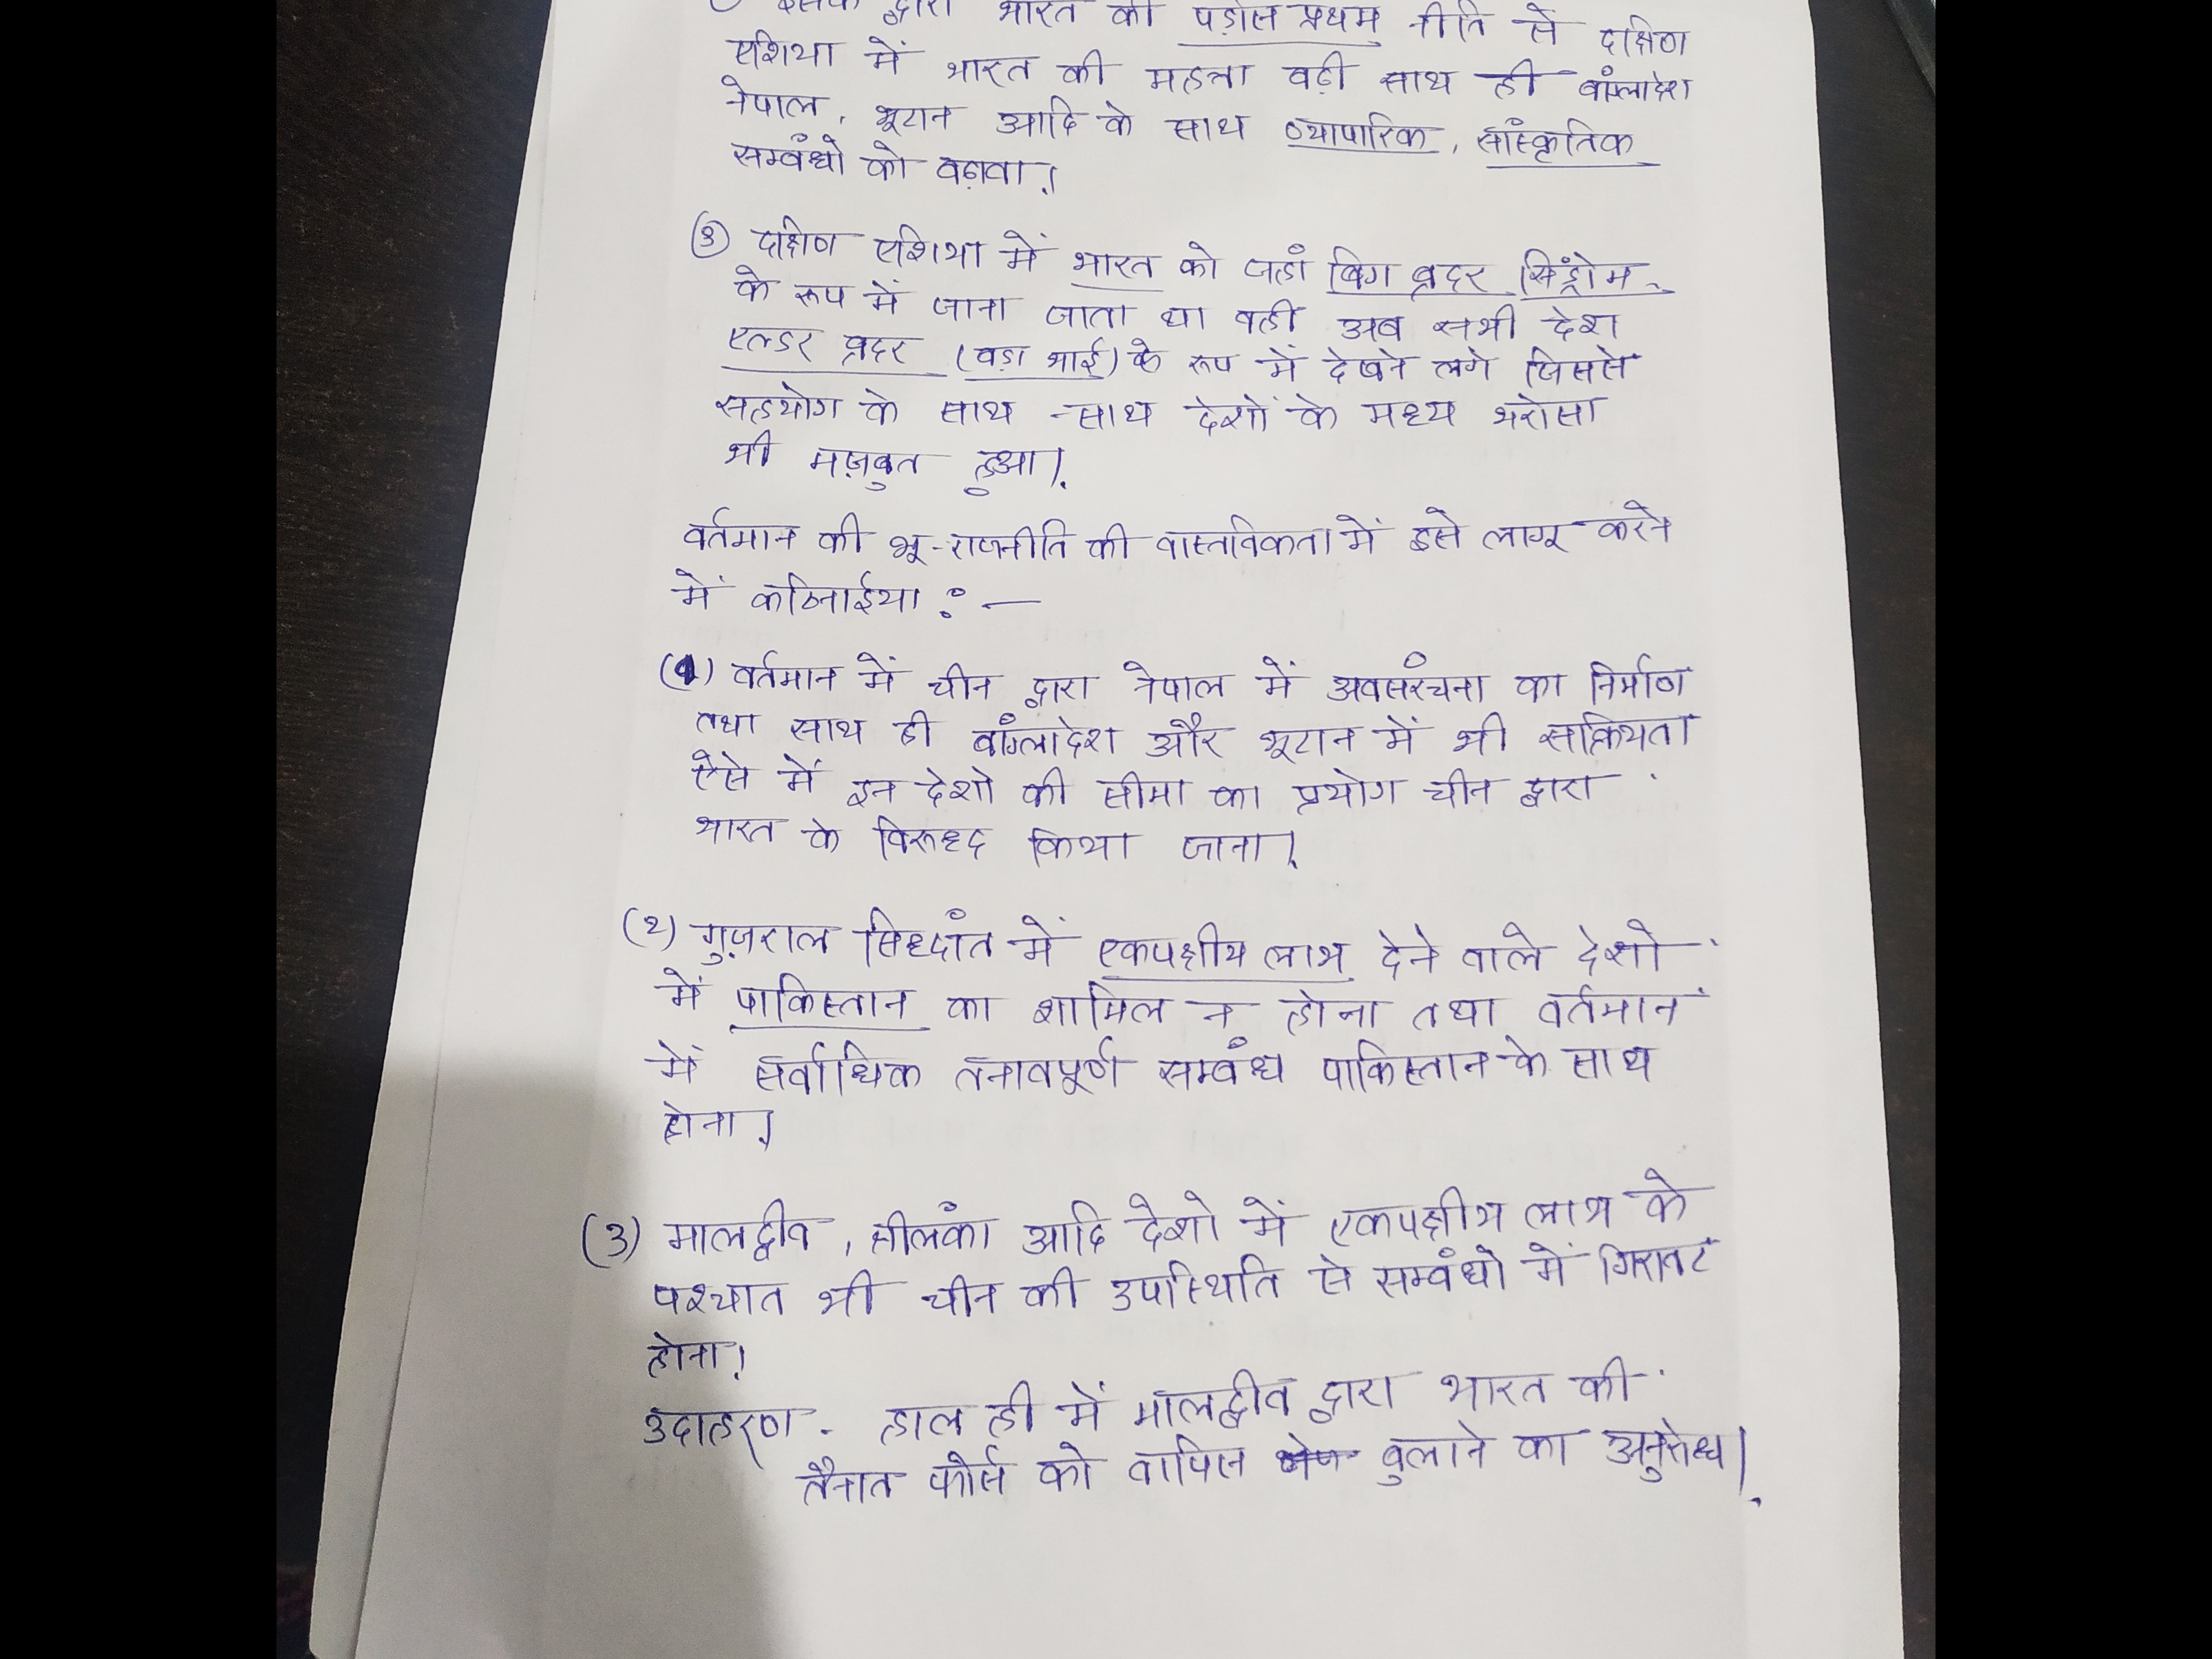 इसके द्वारा भारत की पड़ोस प्रथम नीति से दक्षिण
एशिया में भारत की महत्ता बढ़ी साथ ही बांग्लादेश
नेपाल, भूटान आदि के साथ व्यापारिक, सांस्कृतिक
सम्बंधो को बढ़ावा।
③ दक्षिण एशिया में भारत को जहां बिग ब्रदर सिंड्रोम
के रूप में जाना जाता था वही अब सभी देश
एल्डर ब्रदर (बड़ा भाई) के रूप में देखने लगे जिससे
सहयोग के साथ -साथ देशों के मध्य भरोसा
भी मज़बुत हुआ।
वर्तमान की भू-राजनीति की वास्तविकता में इसे लागू करने
में कठिनाईया :—
(1) वर्तमान में चीन द्वारा नेपाल में अवसंरचना का निर्माण
तथा साथ ही बांग्लादेश और भूटान में भी सक्रियता
ऐसे में इन देशो की सीमा का प्रयोग चीन द्वारा
भारत के विरूध्द किया जाना।
(2) गुज़राल सिध्दांत में एकपक्षीय लाभ देने वाले देशो
में पाकिस्तान का शामिल न होना तथा वर्तमान
में सर्वाधिक तनावपूर्ण सम्बंध पाकिस्तान के साथ
होना।
(3) मालद्वीव, श्रीलंका आदि देशो में एकपक्षीय लाभ के
पश्चात भी चीन की उपस्थिति से सम्बंधो में गिरावट
होना।
उदाहरण - हाल ही में मालद्वीव द्वारा भारत की
तैनात फोर्स को वापिस बुलाने का अनुरोध।